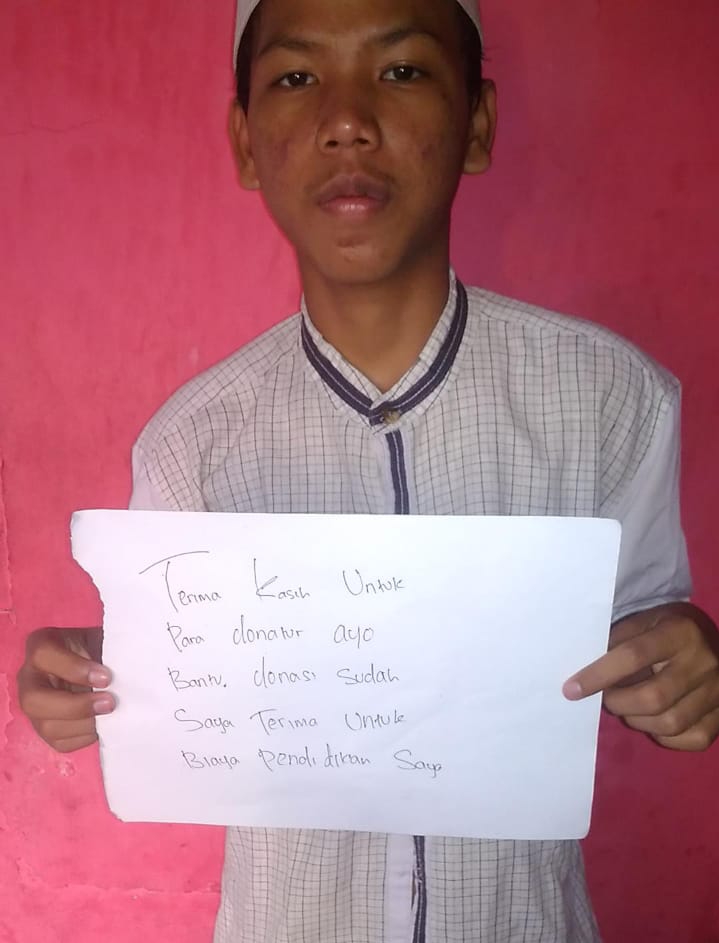 Terima Kasih Untuk
Para donatur ayo
Bantu. donasi sudah
Saya Terima Untuk
Biaya Pendidikan Saya